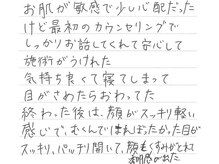 お肌が敏感で少し心配だった
けど最初のカウンセリングで
しっかりお話してくれて安心して
施術がうけれた
気持ち良くて寝てしまって
目がさめたらおわってた
終わった後は、顔がスッキリ軽い
感じで、むくんではれぼったかった目が
スッキリ、パッチリ開いて、顔もくすみがとれて